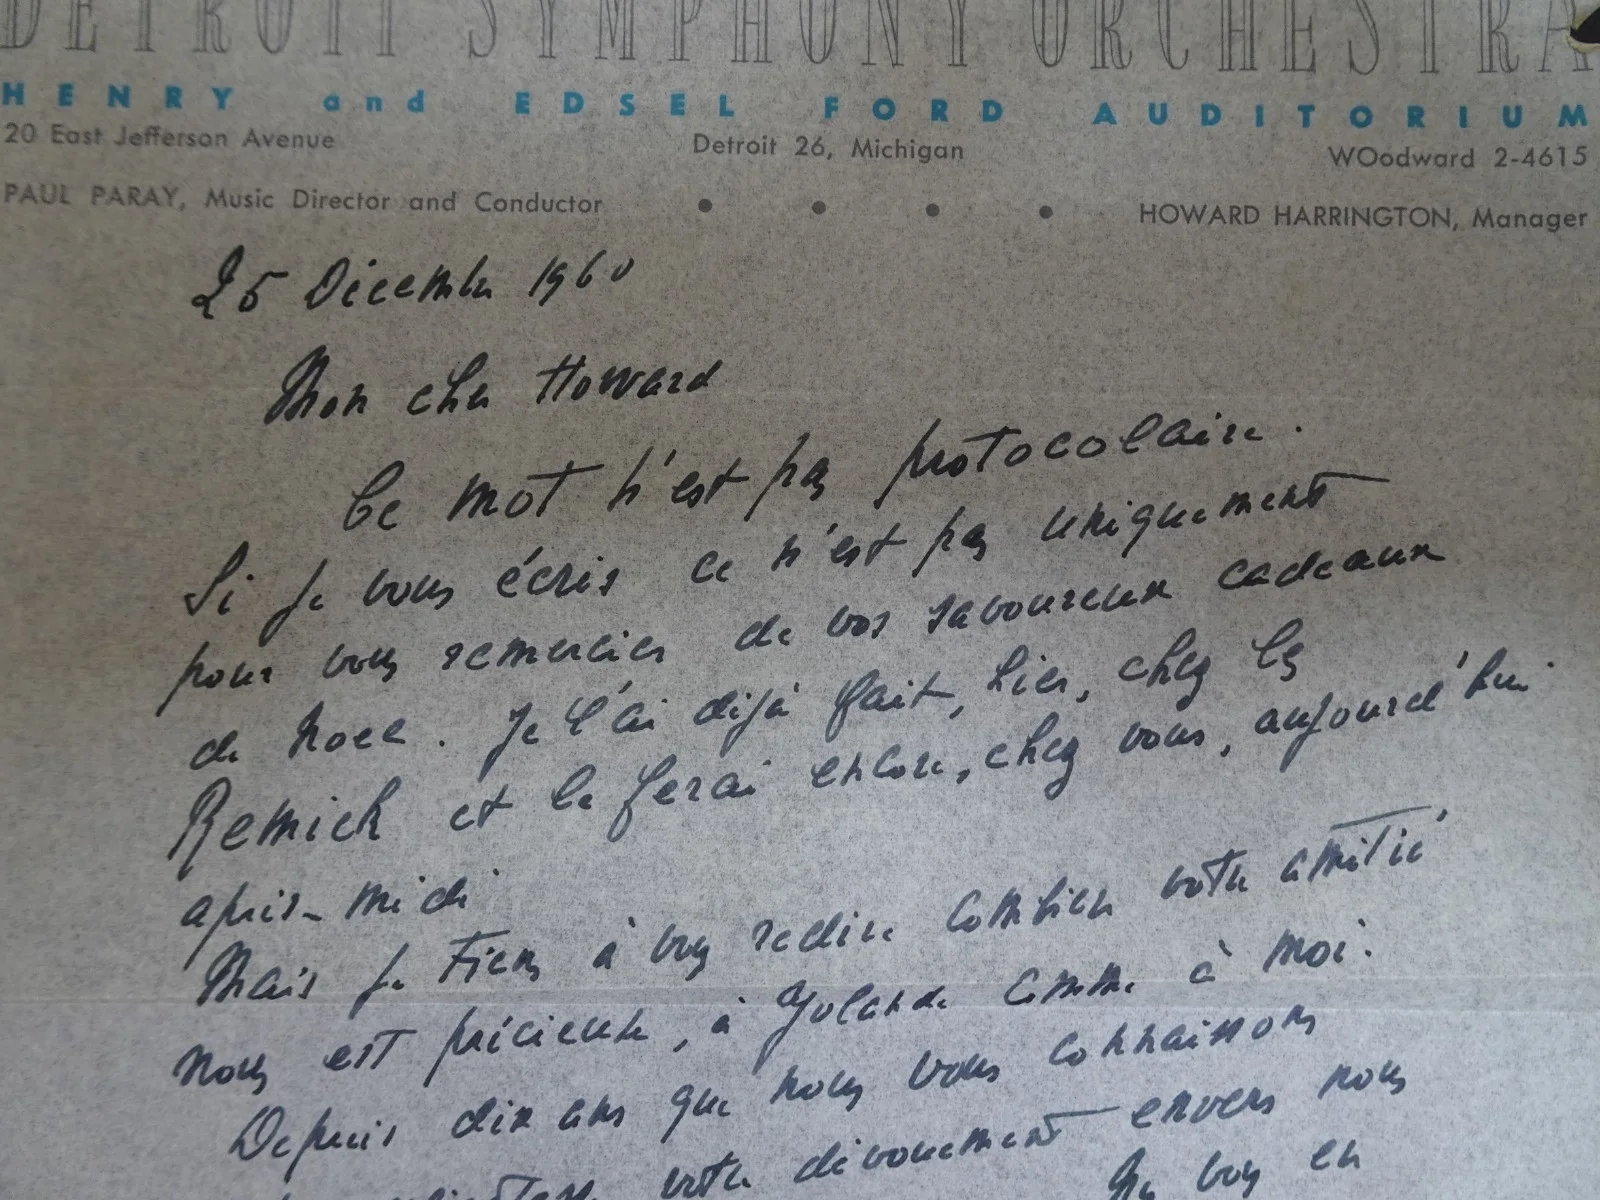 DETROIT SYMPHONY ORCHESTRA
HENRY and EDSEL FORD AUDITORIUM
20 East Jefferson Avenue Detroit 26, Michigan WOodward 2-4615
PAUL PARAY, Music Director and Conductor • • • • HOWARD HARRINGTON, Manager
25 Décembre 1960
Mon cher Howard
Ce mot n'est pas protocolaire.
Si je vous écris ce n'est pas uniquement
pour vous remercier de vos savoureux cadeaux
de Noel. Je l'ai déjà fait, hier, chez les
Remick et le ferai encore, chez vous, aujourd'hui
après-midi
Mais je tiens à vous redire combien votre amitié
nous est précieuse, à Yolande comme à moi.
Depuis dix ans que nous vous connaissons
votre dévouement envers nous
Je vous en